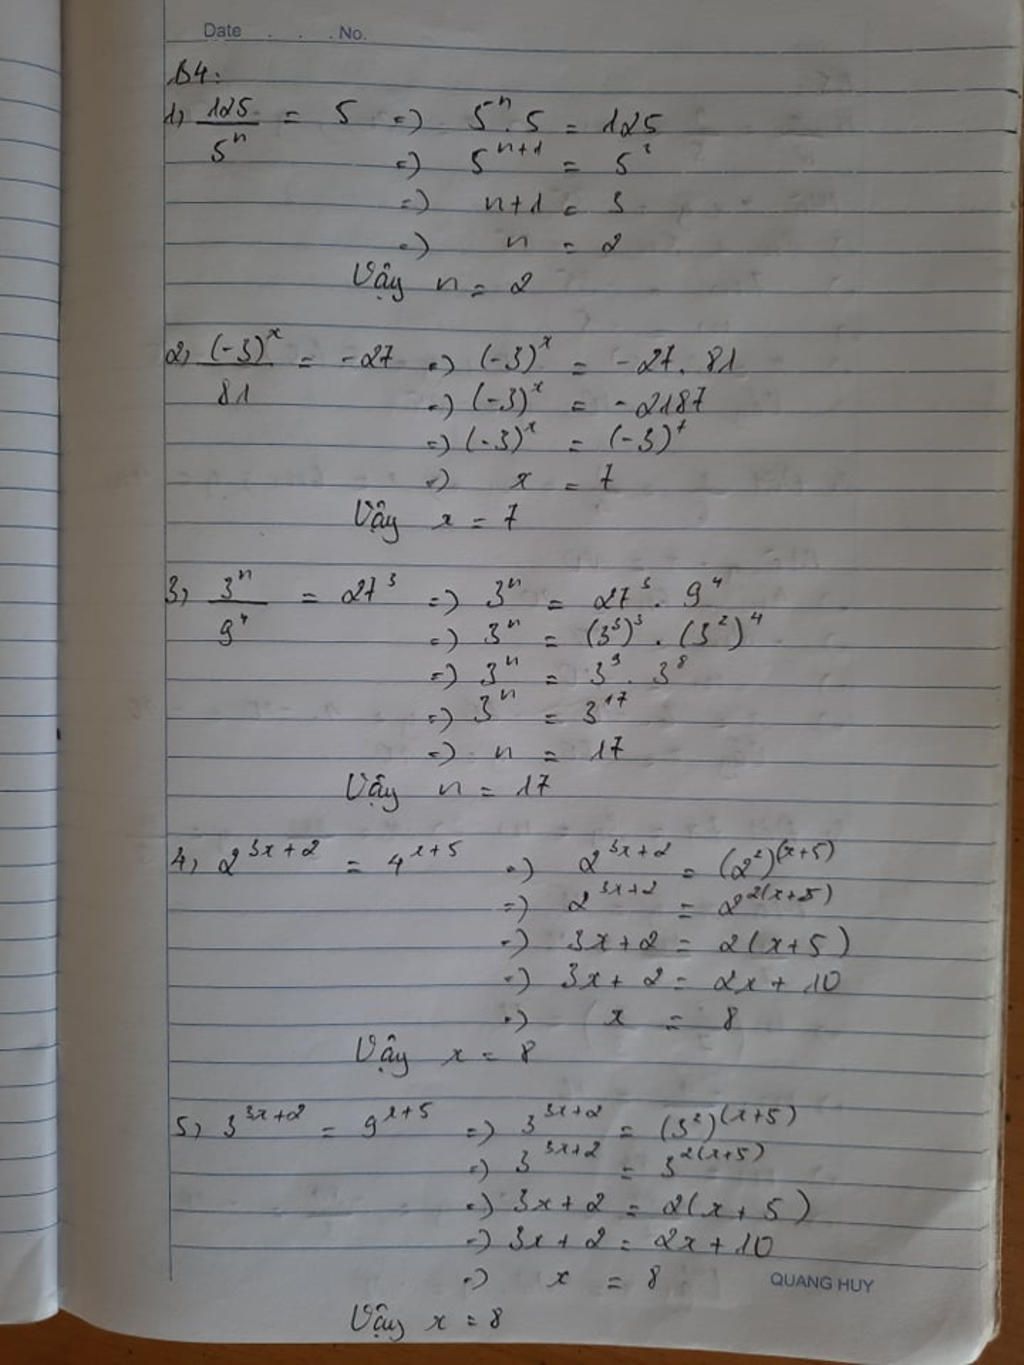 Date . . . No.
B4:
1, 125/5^n = 5 =) 5^n . 5 = 125
=) 5^{n+1} = 5^3
=) n+1 = 3
=) n = 2
Vậy n = 2
2, (-3)^x/81 = -27 =) (-3)^x = -27. 81
=) (-3)^x = -2187
=) (-3)^x = (-3)^7
=) x = 7
Vậy x = 7
3, 3^n/9^4 = 27^3 =) 3^n = 27^3 . 9^4
=) 3^n = (3^3)^3 . (3^2)^4
=) 3^n = 3^9 . 3^8
=) 3^n = 3^17
=) n = 17
Vậy n = 17
4, 2^{3x+2} = 4^{x+5} =) 2^{3x+2} = (2^2)^{(x+5)}
=) 2^{3x+2} = 2^{2(x+5)}
=) 3x+2 = 2(x+5)
=) 3x+2 = 2x+10
=) x = 8
Vậy x = 8
5, 3^{3x+2} = 9^{x+5} =) 3^{3x+2} = (3^2)^{(x+5)}
=) 3^{3x+2} = 3^{2(x+5)}
=) 3x+2 = 2(x+5)
=) 3x+2 = 2x+10
=) x = 8
QUANG HUY
Vậy x = 8